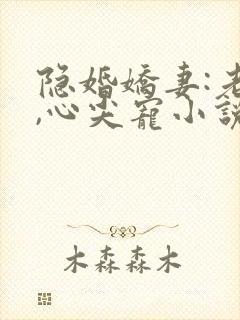 隐婚娇妻:老
,心尖宠小说
木森森木